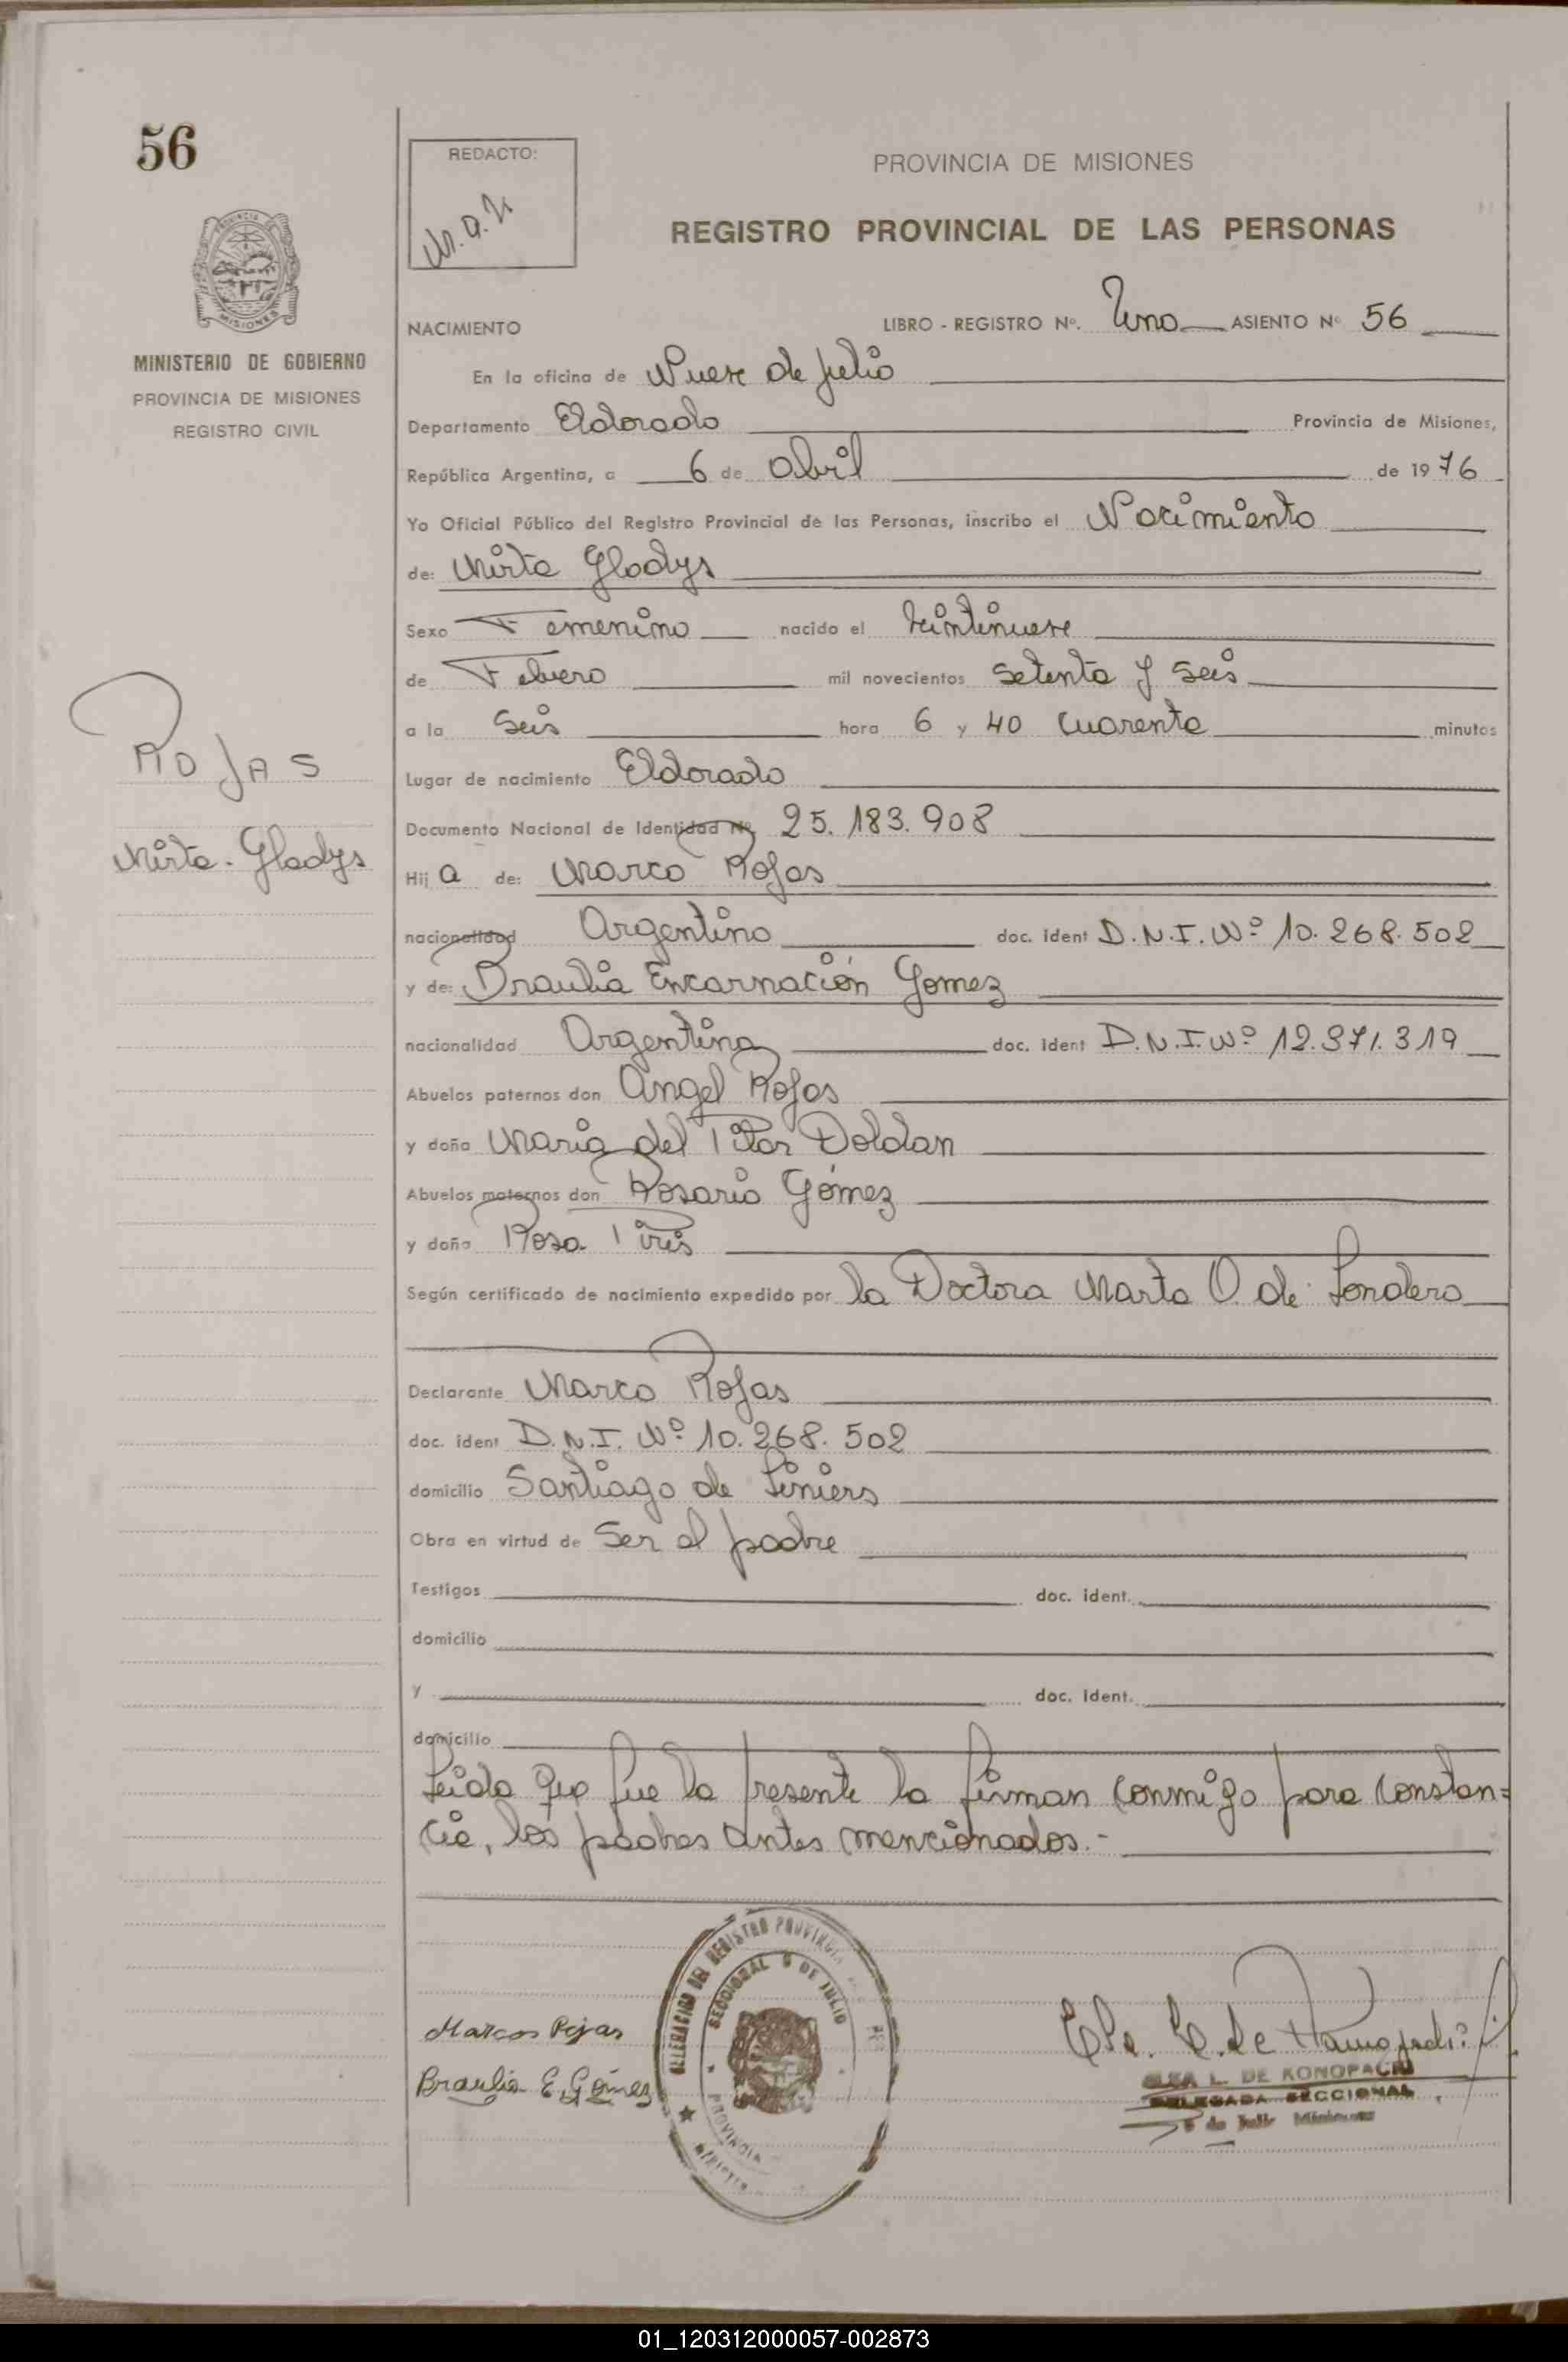 56
REDACTO:
PROVINCIA DE MISIONES
REGISTRO PROVINCIAL DE LAS PERSONAS
MISIONES
MINISTERIO DE GOBIERNO
PROVINCIA DE MISIONES
REGISTRO CIVIL
NACIMIENTO LIBRO - REGISTRO Nº. Uno ASIENTO Nº 56
En la oficina de Nueve de Julio
Departamento Eldorado Provincia de Misiones,
República Argentina, a 6 de Abril de 1976
Yo Oficial Público del Registro Provincial de las Personas, inscribo el Nacimiento
de: Mirta Gladys
Sexo Femenino nacido el Veintinueve
de Febrero mil novecientos setenta y seis
a la seis hora 6 y 40 cuarenta minutos
ROJAS
Lugar de nacimiento Eldorado
Documento Nacional de Identidad Nº 25.183.908
Mirta-Gladys
Hija de: Marco Rojas
nacionalidad Argentino doc. ident D.N.I. Nº 10.268.502
y de: Braulia Encarnación Gomez
nacionalidad Argentina doc. ident D.N.I. Nº 12.371.319
Abuelos paternos don Angel Rojas
y doña Maria del Pilar Doldan
Abuelos maternos don Rosario Gómez
y doña Rosa Piris
Según certificado de nacimiento expedido por la Doctora Marta O. de Londero
Declarante Marco Rojas
doc. ident D.N.I. Nº 10.268.502
domicilio Santiago de Liniers
Obra en virtud de Ser el padre
Testigos doc. ident.
domicilio
y doc. ident.
domicilio
Leida que fue la presente la firman conmigo para constan=
cia, los padres antes mencionados.-
DELEGACION DEL REGISTRO PROVINCIAL DE
SECCIONAL 9 DE JULIO
PROVINCIA
Marcos Rojas
Braulia E. Gómez
ELSA L. DE KONOPACKI
DELEGADA SECCIONAL
9 de Julio Misiones
01_120312000057-002873